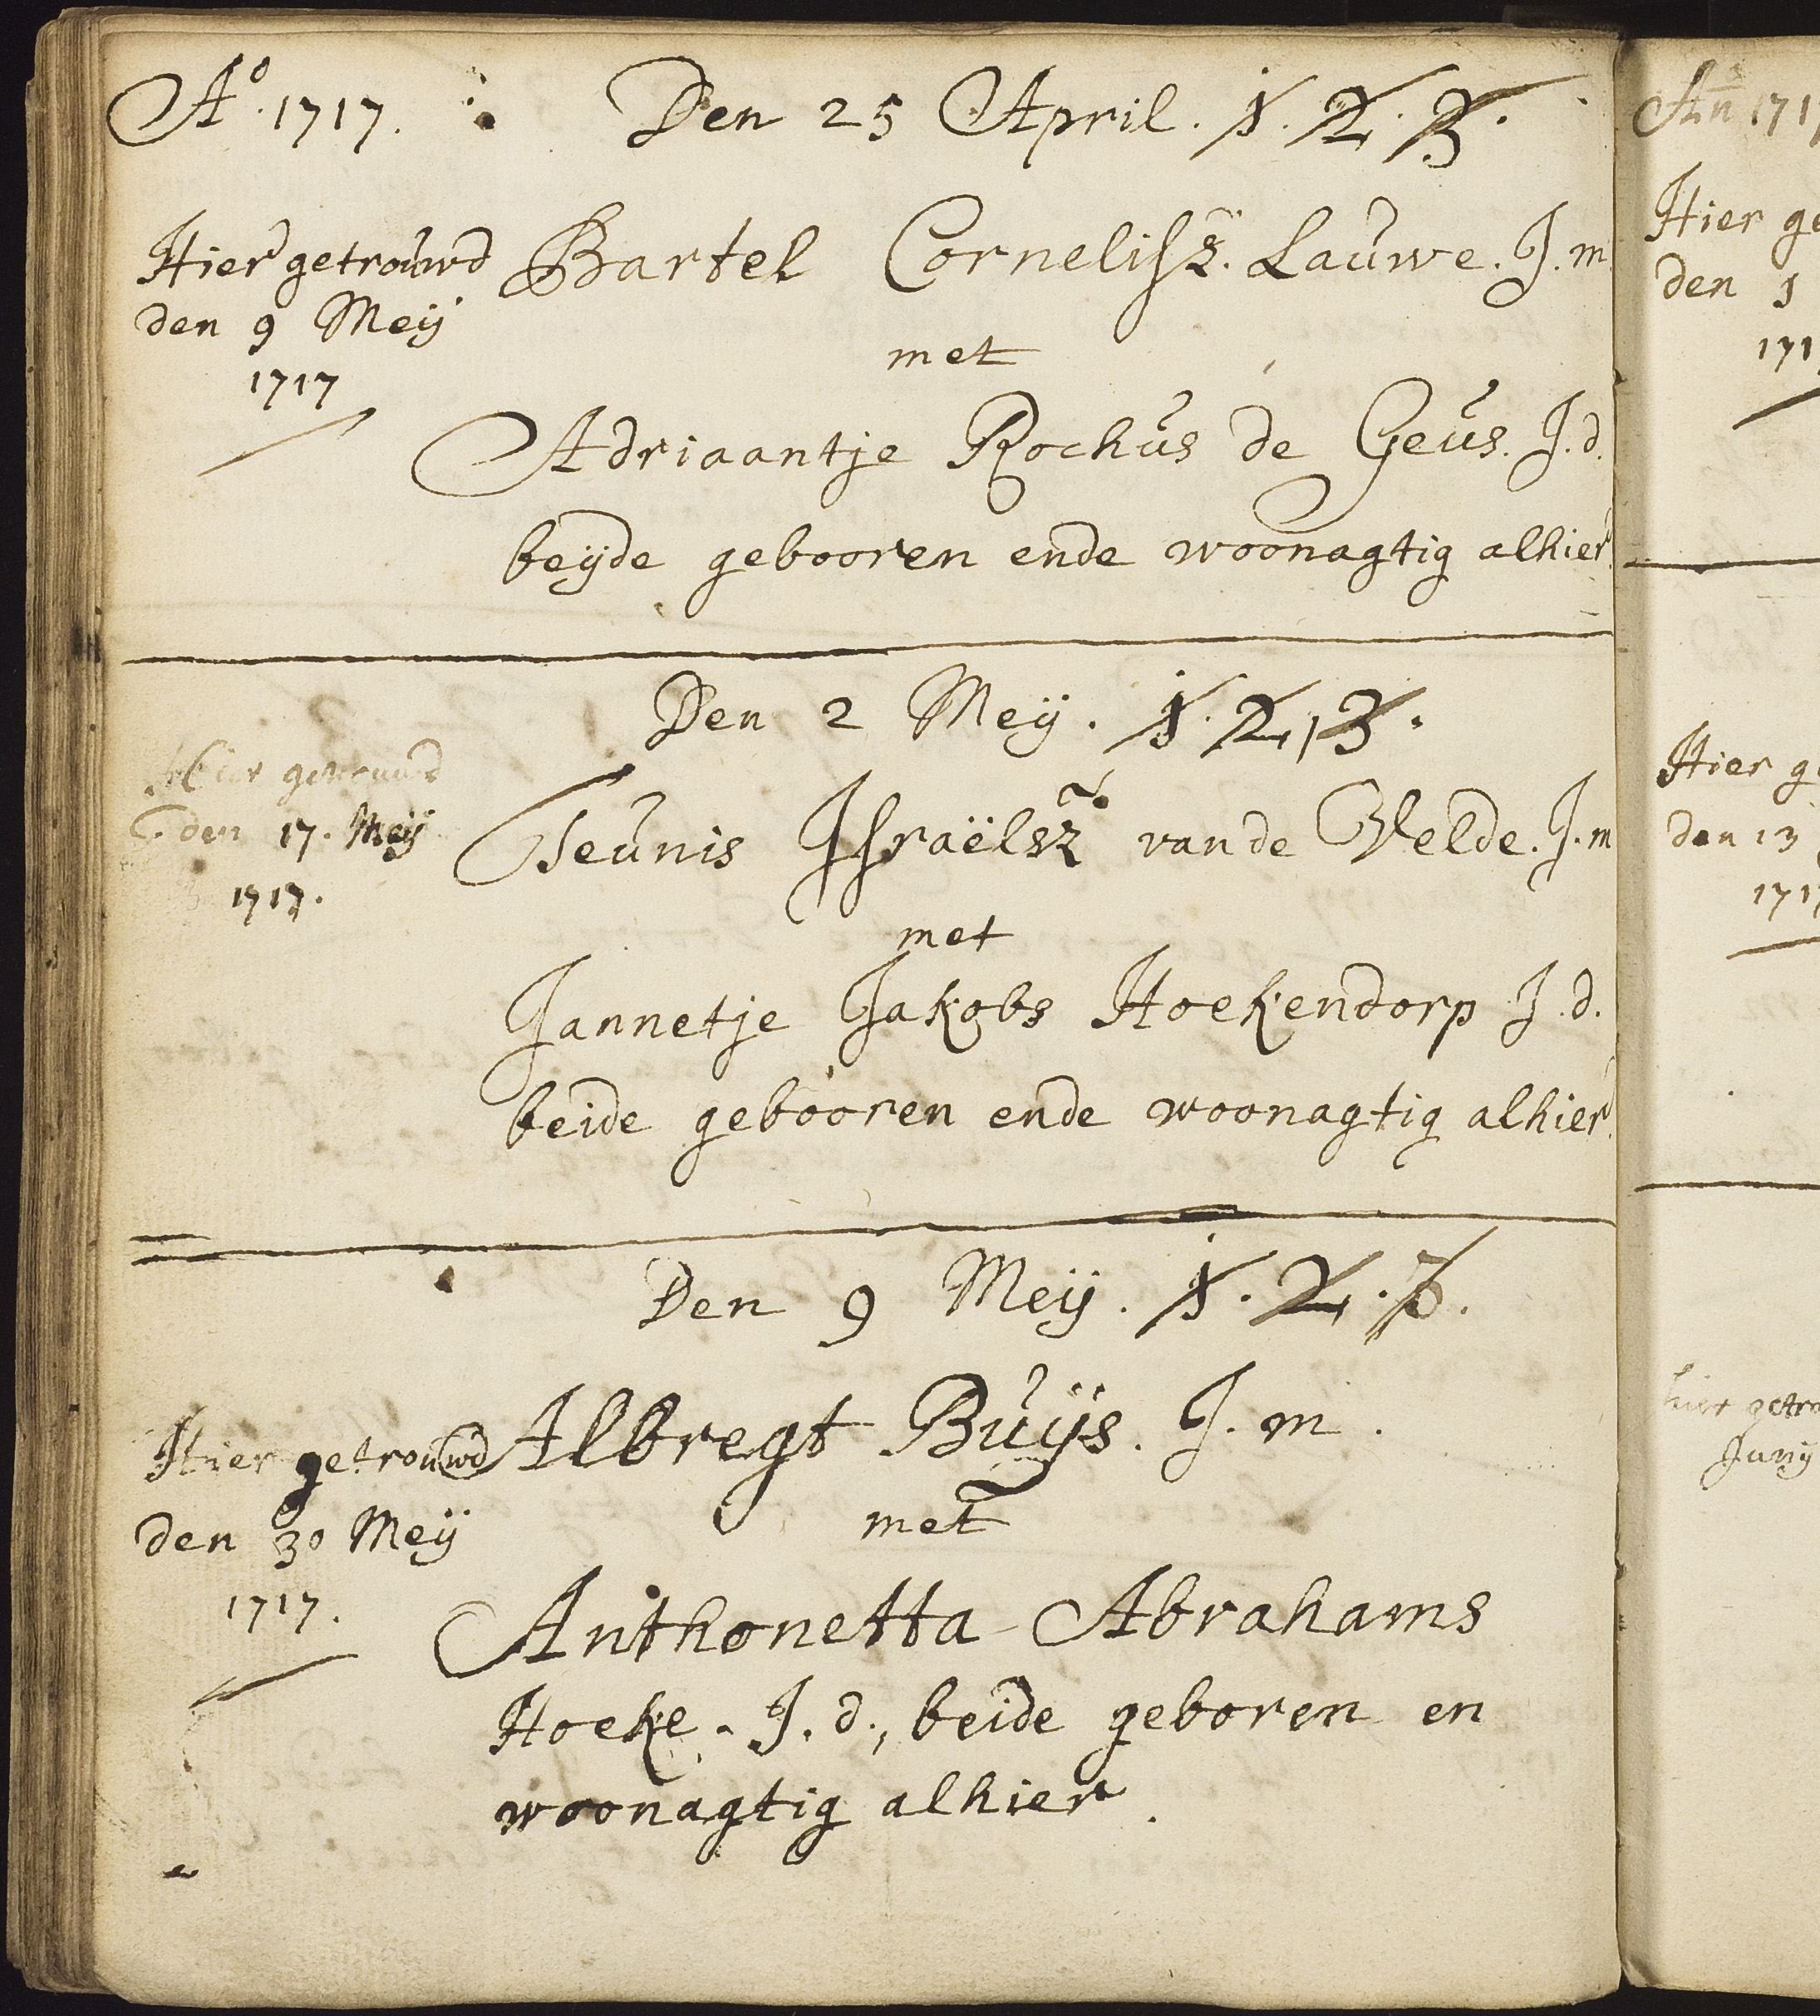 Ao. 1717. Den 25 April. 1. 2. 3.
Hier getrouwd
den 9 Meij
1717
Bartel Cornelisz. Lauwe. J. m.
met
Adriaantje Rochus de Geus. J. d.
beyde gebooren ende woonagtig alhier
Den 2 Meij. 1. 2, 3.
Hier getrouwd
den 17. Meij
1717.
Teunis Israëlsz vande Velde. J. m
met
Jannetje Jakobs Hoekendorp J. d.
beide gebooren ende woonagtig alhier
Den 9 Meij. 1. 2. 3.
Hier getrouwd
den 30 Meij
1717.
Albregt Buijs. J. m.
met
Anthonetta Abrahams
Hoeke. J. d., beide geboren en
woonagtig alhier.
An 171
Hier ge
den 9
171
Hier ge
den 13
1717
hier getro
Juny